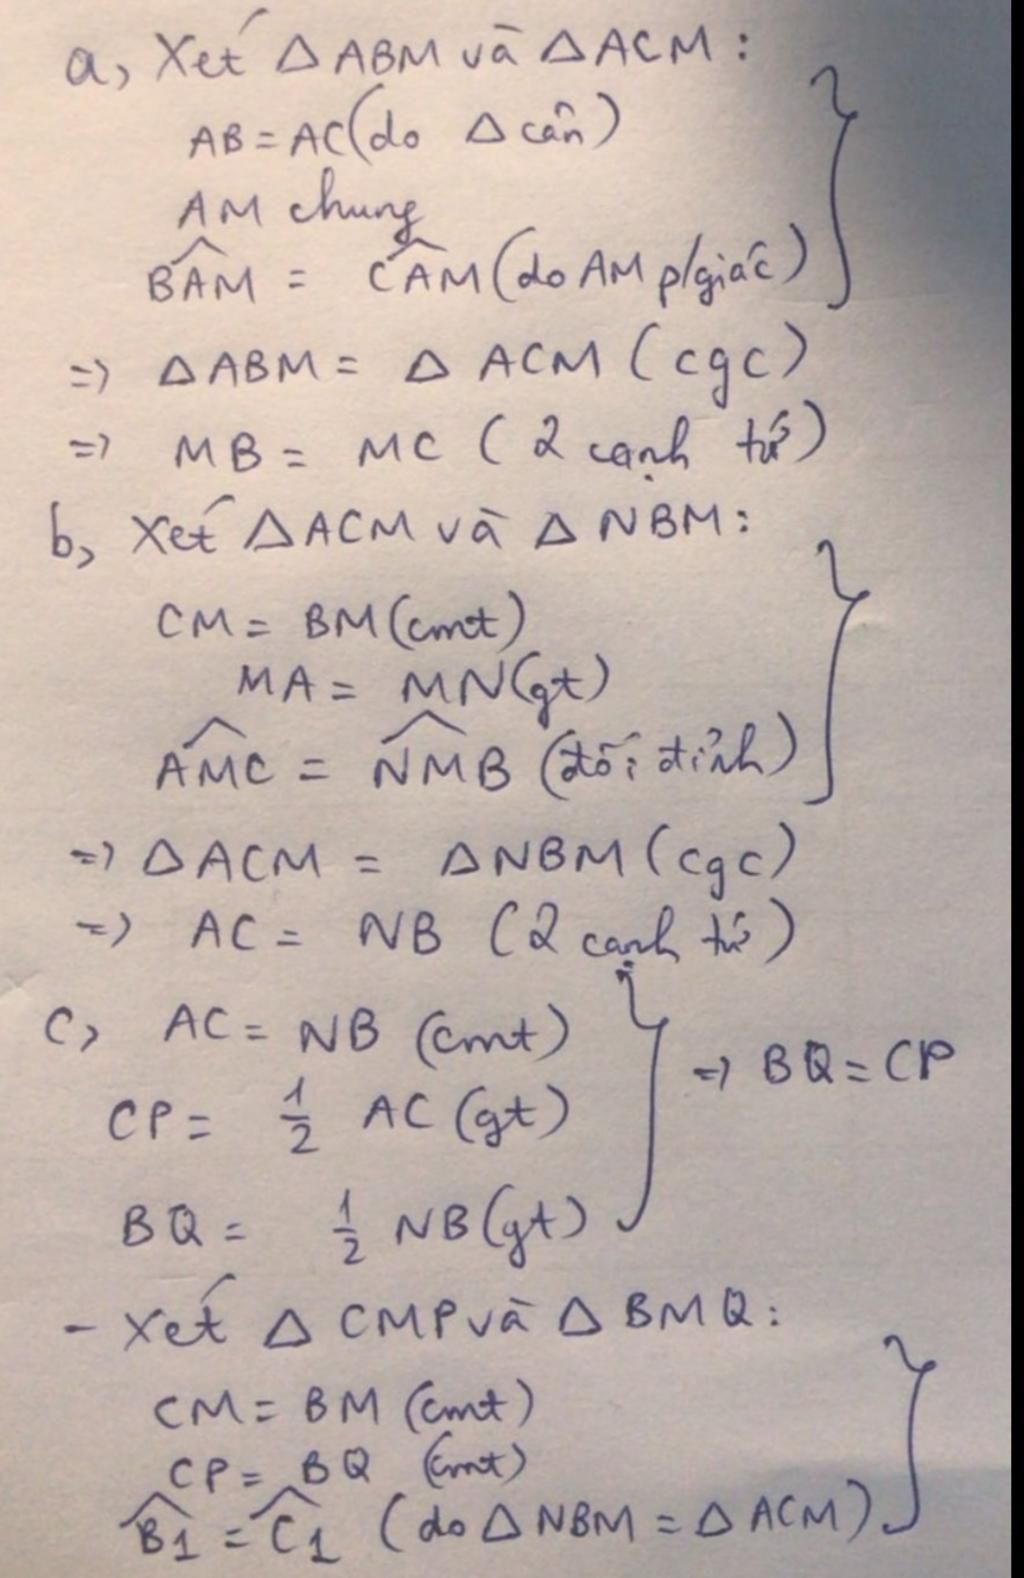 a, Xét △ABM và △ACM:
AB = AC (do △ cân)
AM chung
BAM̂ = CAM̂ (do AM p/giác)
=> △ABM = △ACM (cgc)
=> MB = MC (2 cạnh tứ)
b, Xét △ACM và △NBM:
CM = BM (cmt)
MA = MN (gt)
AMĈ = NMB̂ (đối đỉnh)
=> △ACM = △NBM (cgc)
=> AC = NB (2 cạnh tứ)
c, AC = NB (cmt)
=> BQ = CP
CP = 1/2 AC (gt)
BQ = 1/2 NB (gt)
- Xét △CMP và △BMQ:
CM = BM (cmt)
CP = BQ (cmt)
B̂1 = Ĉ1 (do △NBM = △ACM)